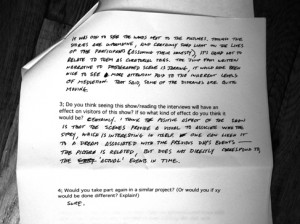 IT WAS ODD TO SEE THE WORDS NEXT TO THE PICTURES. THOUGH THE
STORIES ARE INTERESTING, AND CERTAINLY SHED LIGHT ON THE LIVES
OF THE PARTICIPANTS (ASSUMING THEIR HONESTY), IT'S HARD NOT TO
RELATE TO THEM AS CURATORIAL TOOLS. THE JUMP FROM WRITTEN
NARRATIVE TO PHOTOGRAPHED SCENE IS JARRING, IT WOULD HAVE BEEN
NICE TO SEE A MORE ATTENTION PAID TO THE INHERENT LEVELS
OF MEDIATION. THAT SAID, SOME OF THE DIORAMAS ARE QUITE
MOVING.
3; Do you think seeing this show/reading the interviews will have an
effect on visitors of this show? If so what kind of effect do you think it
would be? CERTAINLY. I THINK THE POSITIVE ASPECT OF THE SHOW
IS THAT THE SCENES PROVIDE A VISUAL TO ASSOCIATE WITH THE
STORY, WHICH IS INTERESTING IN ITSELF. ONE CAN LIKEN IT
TO A DREAM ASSOCIATED WITH THE PREVIOUS DAY'S EVENTS —
THE PICTURE IS RELATED, BUT DOES NOT DIRECTLY CORRESPOND TO
THE "ACTUAL" EVENT IN TIME.
4; Would you take part again in a similar project? (Or would you if
would be done different? Explain!)
SURE.